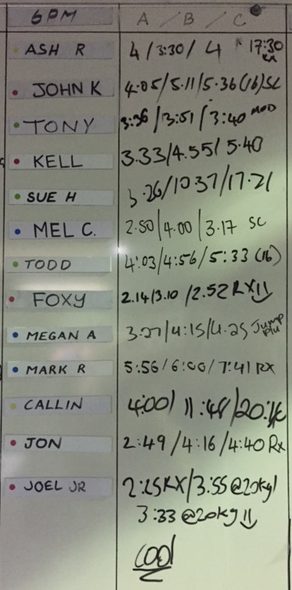 6PM A / B / C
ASH R 4 / 3:30 / 4 17:30
JOHN K 4:05/5:11/5:36 (16) SC
TONY 3:36 /3:51 /3:40 MOD
KELL 3.33/4.55/5.40
SUE H 3.26/10 37/17.21
MEL C. 2:50/4:00/3:17 SC
TODD 4:03/4:56/5:33 (16)
FOXY 2.14/3.10 /2.52 RX
MEGAN A 3.27/4:15/4.25 Jump
MARK R 5:56/6:00/7:41 RX
CALLIN 4:00/ 11:48/
JON 2:49 /4:16/4:40 Rx
JOEL JR 2:25RX/3.55@20kg/
3:33 @20kg
COOL